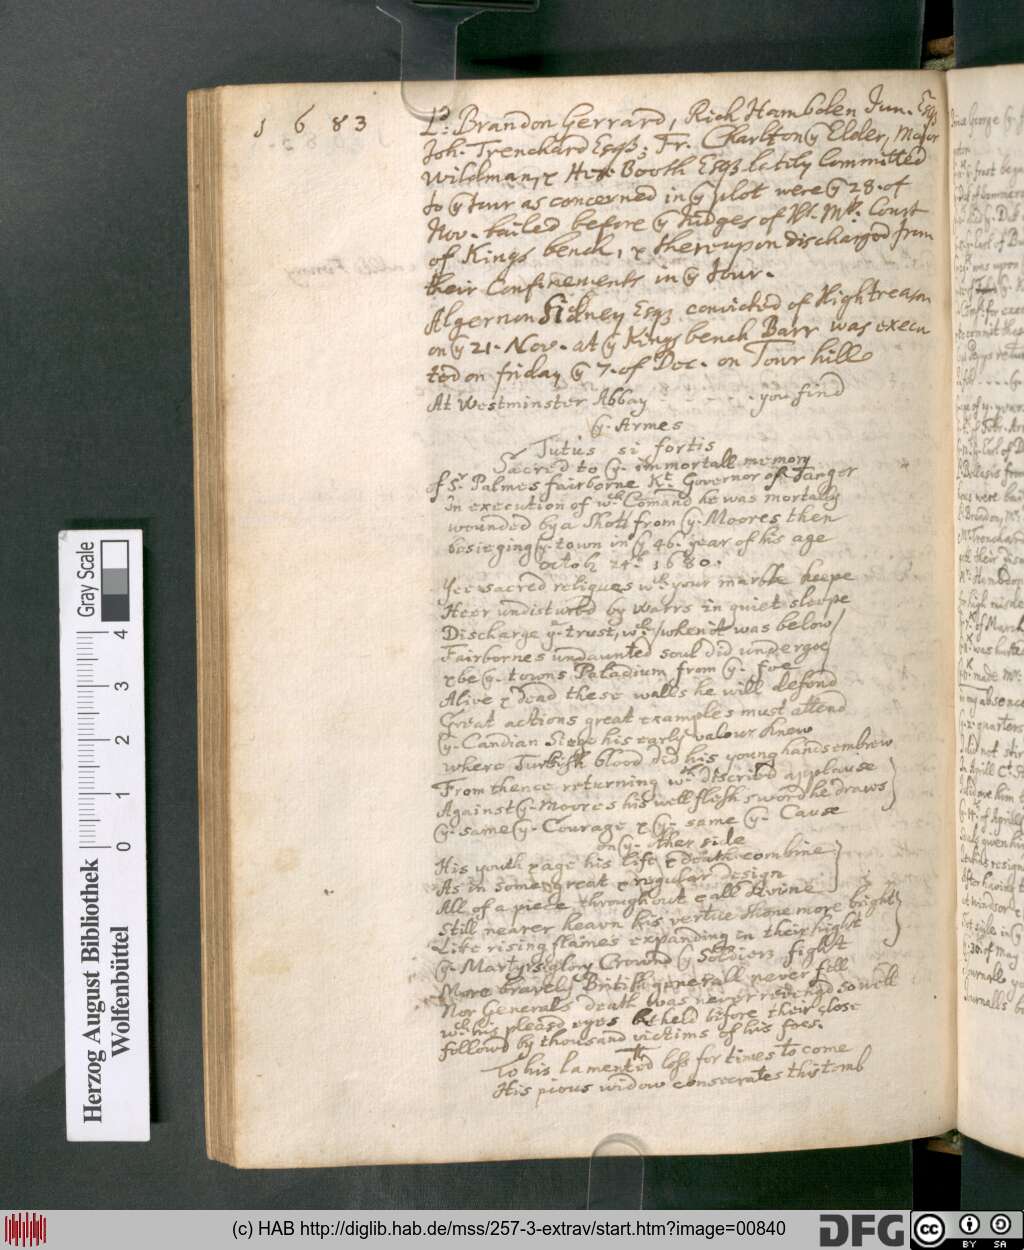 1 6 83
Ld: Brandon Gerrard, Rich Hambden Jun. Esqs
Joh. Trenchard Esqs; Fr. Charlton ye Elder, Major
Wildman, & Hen. Booth Esqs lately Committed
to ye tour as concerned in ye plot were ye 28. of
Nov. bailed before ye Judges of H. Mts. Court
of Kings bench, & thereupon discharged from
their Confinements in ye Tour.
Algernon Sidney Esqs convicted of High treason
on ye 21. Nov. at ye Kings bench Barr was execu
ted on friday ye 7. of Dec. on Tour hill
At Westminster Abbay - - - - - you find
ye. Armes
Tutus si fortis
Sacred to ye. immortall memory
of Sr. Palmes fairborne Kt. Governor of Tanger
In execution of wch Comand he was mortally
wounded by a Shott from ye. Moores then
besieging ye. town in ye 46. year of his age
octob 24th 1680.
Yee sacred reliques wch your marble keepe
Heer undisturbd by warrs in quiet sleepe
Discharge ye trust, wch when it was below
Fairbornes undaunted soul did undergoe
& be ye. towns Paladium from ye. foe
Alive & dead these walls he will defend
Great actions great examples must attend
ye. Candian Siege his early valour knew
where Turkish blood did his young hands embrew
From thence returning wth discribd applause
Against ye. Moores his well flesh sword he draws
ye. same ye. Courage & ye. same ye. Cause
on ye. other side
His youth & age his life & death combine
As in some great & regular design
All of a piece throughout & all devine
Still nearer heavn his vertue shone more bright
Like rising flames expanding in their hight
ye. Martyrs glory Crownd ye Soldiers fight
More bravely British generall never fell
Nor Generals death was never revengd so well
wch his pleasd eyes beheld before their close
followd by thousand victims of his foes.
To his lamented loss for times to come
His pious widow consecrates this tomb
Gray Scale
0 1 2 3 4
Herzog August Bibliothek
Wolfenbüttel
(c) HAB http://diglib.hab.de/mss/257-3-extrav/start.htm?image=00840
DFG
cc
BY SA